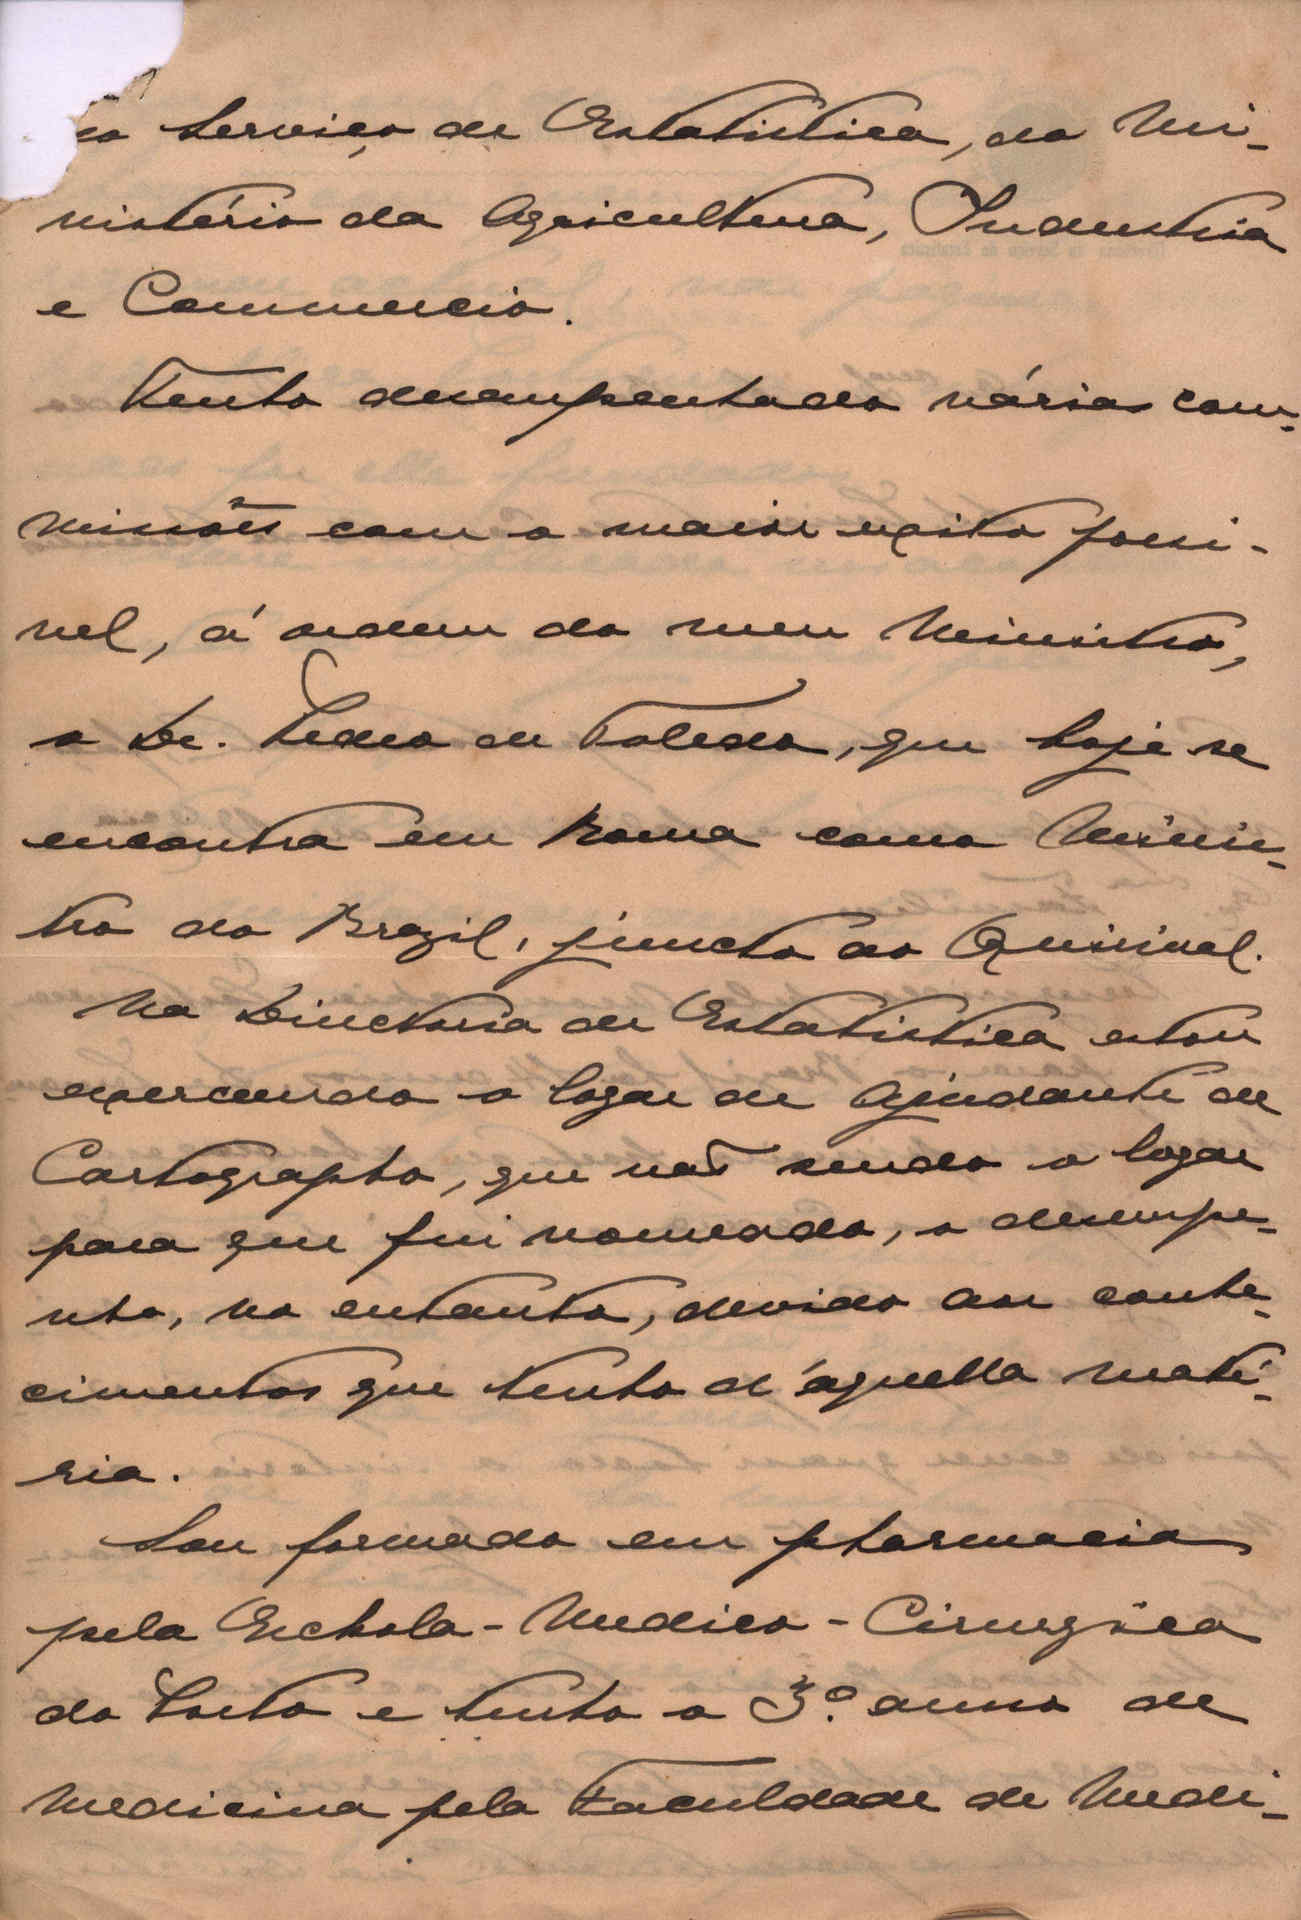 do Serviço de Estatistica, do Mi-
nistério da Agricultura, Industria
e Commercio.
Tenho desempenhado várias com-
missões com o maior exito possi-
vel, á ordem do meu Ministro,
o Dr. Pedro de Toledo, que hoje se
encontra em Roma como Minis-
tro do Brazil, juncto ao Quirinal.
Na Directoria de Estatistica estou
exercendo o logar de Ajudante de
Cartographo, que não sendo o logar
para que fui nomeado, o desempe-
nho, no entanto, devido aos conhe-
cimentos que tenho d'aquella maté-
ria.
Sou formado em pharmacia
pela Eschola-Medico-Cirurgica
do Porto e tenho o 3.º anno de
Medicina pela Faculdade de Medi-